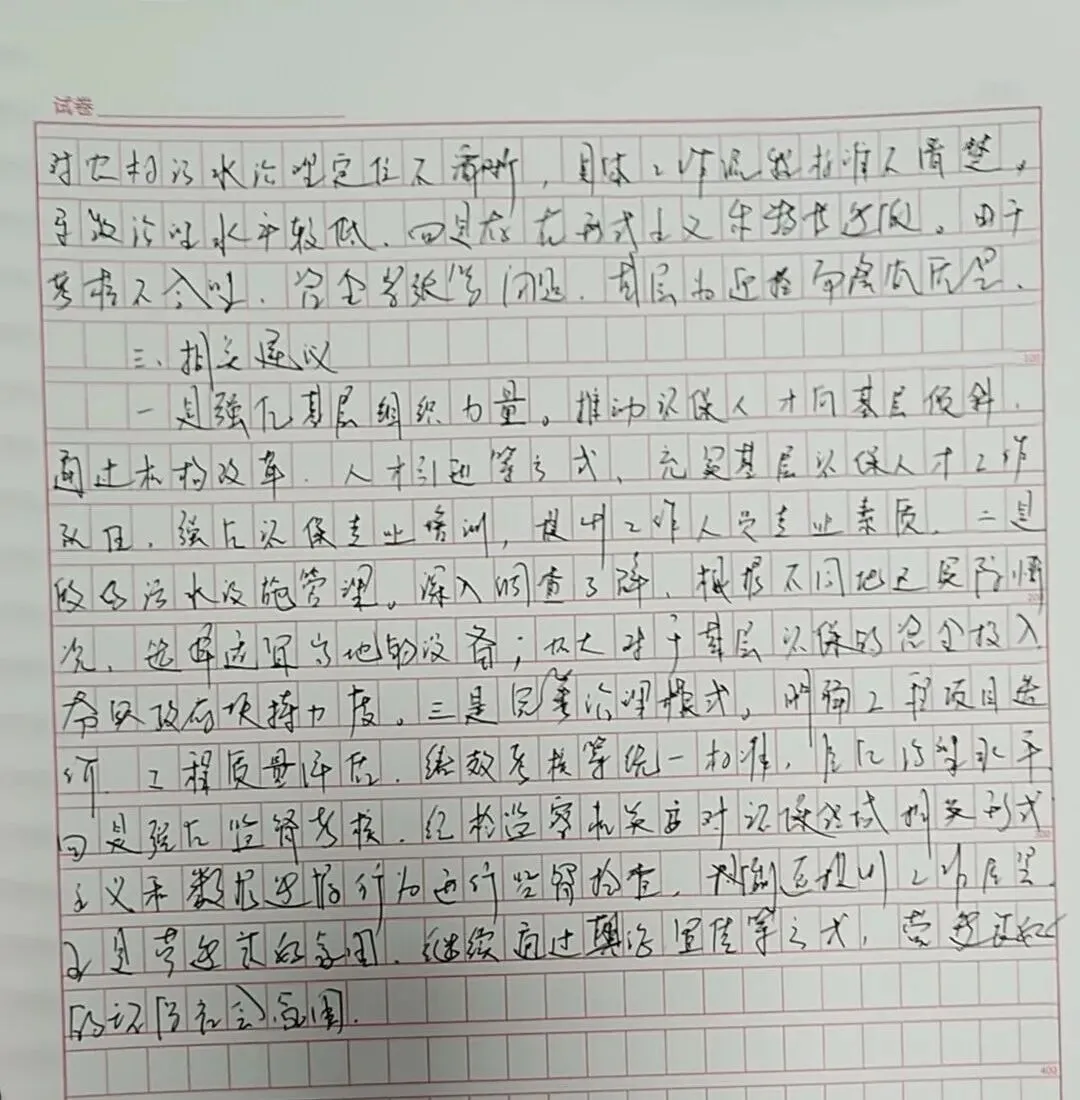 试卷
对农村污水治理定位不清晰，具体工作流程标准不清楚，
导致治理水平较低．四是存在形式主义 ．由于
考核不合理．资金紧张等问题．基层为迎检而 ．
三、相关建议
一是强化基层组织力量。推动环保人才向基层倾斜．
通过机构改革．人才引进等方式、充实基层环保人才工作
队伍．强占环保专业培训，提升工作人员专业素质．二是
做好污水设施管理。深入调查了解．根据不同地区实际情
况、选择适宜当地的设备；加大对于基层环保的资金投入
力度。三是完善治理模式。明确工程项目进
行．工程质量评估．绩效考核等统一标准， 治理水平
四是强占监督考核．纪检监察机关要对环保领域相关形式
主义和数据造假行为进行监督检查． 工作
是营造 氛围．继续通过 宣传等方式，营造良好
的 社会氛围．
100
200
300
400